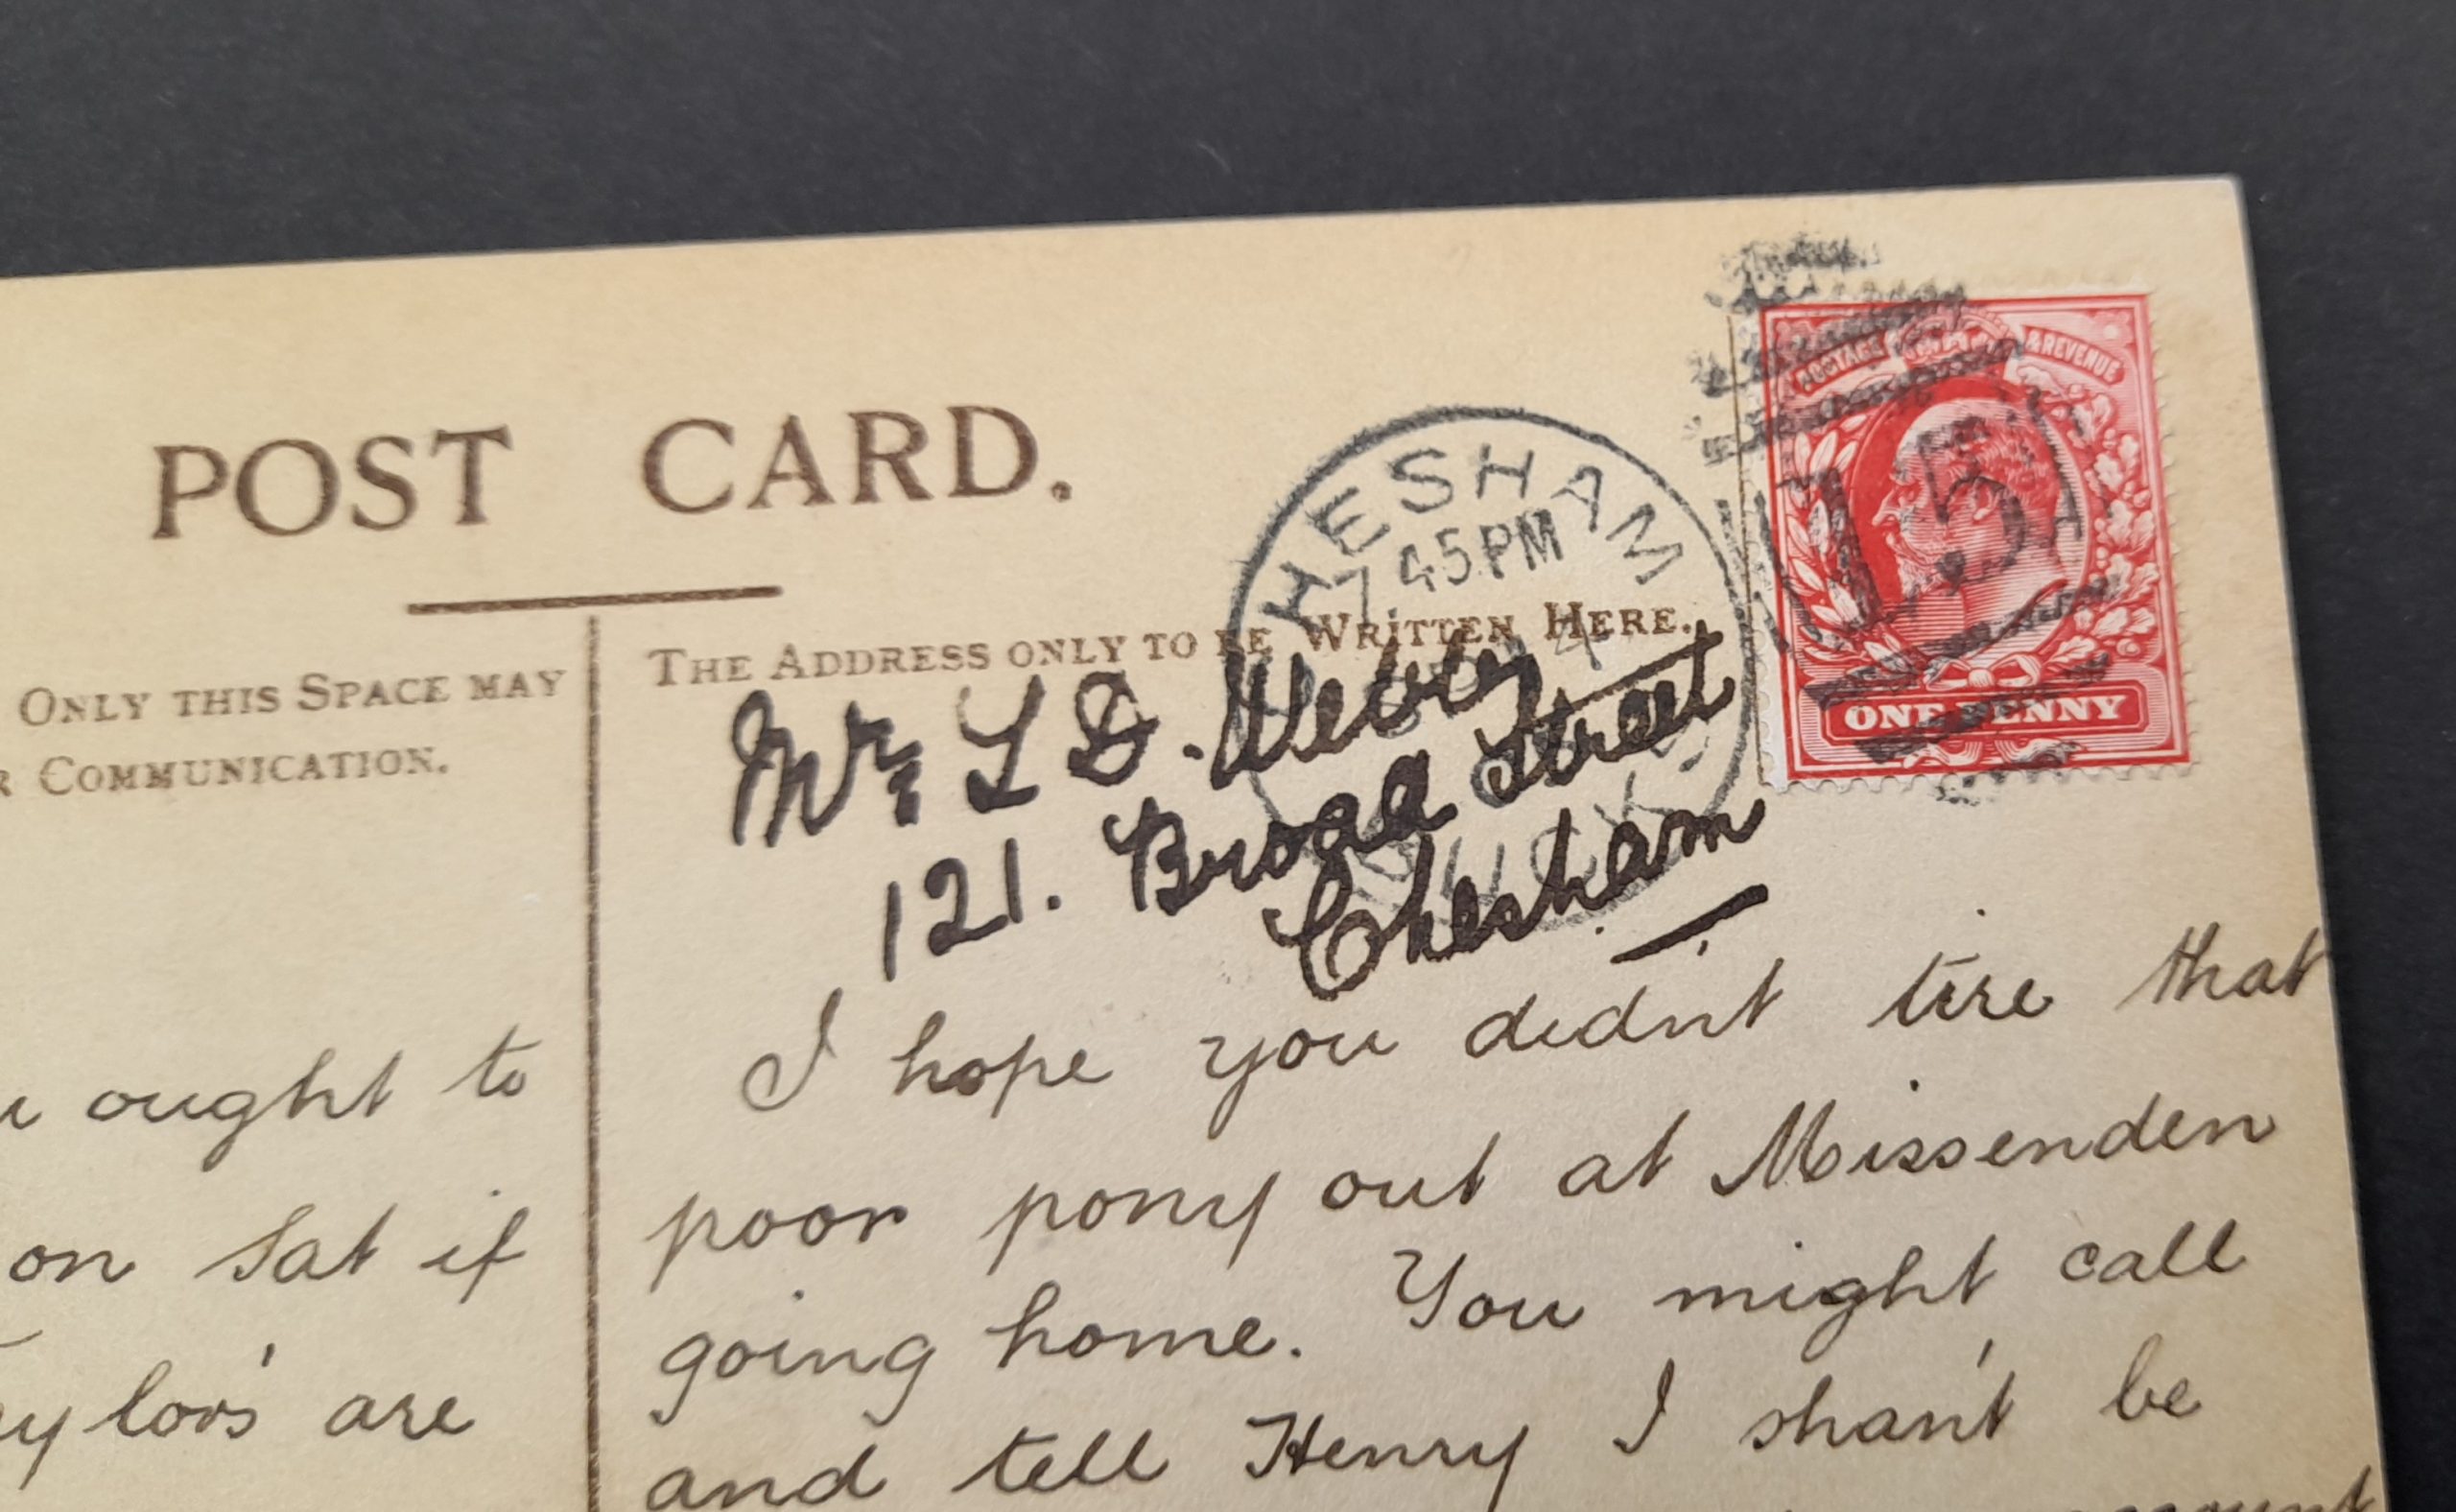 POST CARD.
ONLY THIS SPACE MAY
COMMUNICATION.
ought to
on Sat if
are
THE ADDRESS ONLY TO BE WRITTEN HERE.
Mrs L D. Webb
121. Broad Street
Chesham
I hope you didn't tire that
poor pony out at Missenden
going home. You might call
and tell Henry I shan't be
HESHAM
7 45 PM
POSTAGE & REVENUE
ONE PENNY